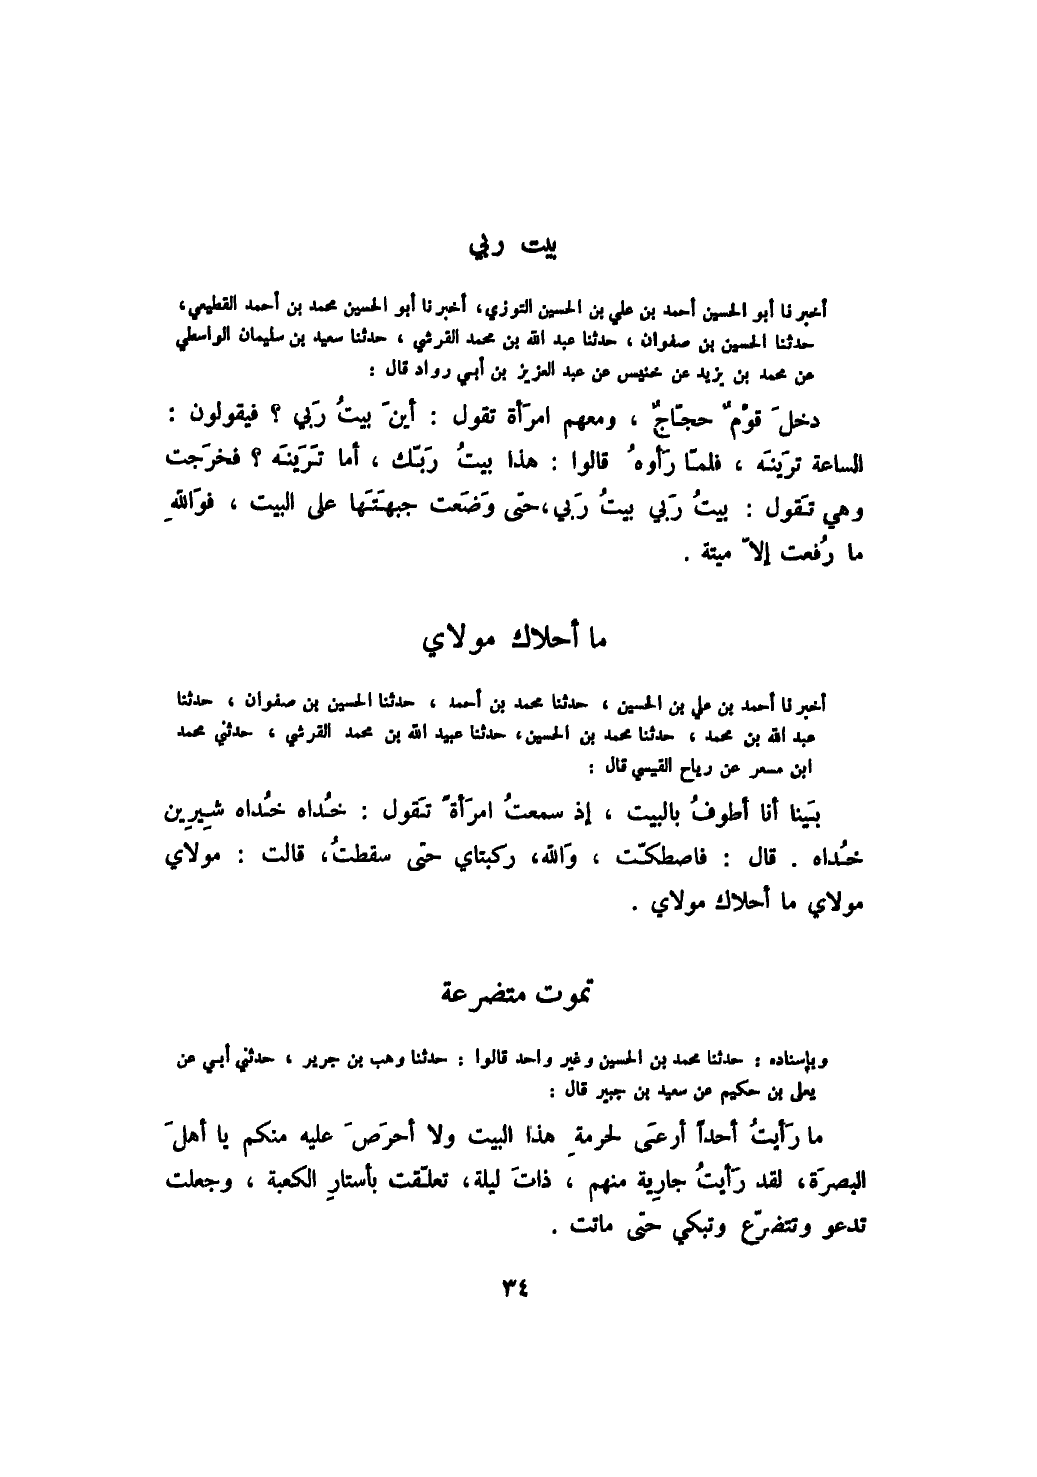 بيت ربي
أخبرنا أبو الحسين أحمد بن علي بن الحسين التوزي، أخبرنا أبو الحسين محمد بن أحمد القطيعي،
حدثنا الحسين بن صفوان ، حدثنا عبد الله بن محمد القرشي ، حدثنا سعيد بن سليمان الواسطي
عن محمد بن يزيد عن خنيس عن عبد العزيز بن أبي رواد قال :
دخلَ قوْمٌ حجّاجٌ ، ومعهم امرَأة تقول : أينَ بيتُ رَبي ؟ فيقولون :
الساعة ترَينَه ، فلمّا رَأوهُ قالوا : هذا بيتُ رَبّك ، أما تَرَينَه ؟ فخرَجت
وهي تَقول : بيتُ رَبي بيتُ رَبي،حتّى وَضَعت جبهَتَها على البيت ، فوَاللهِ
ما رُفعت إلاّ ميتة .
ما أحلاك مولاي
أخبرنا أحمد بن علي بن الحسين ، حدثنا محمد بن أحمد ، حدثنا الحسين بن صفوان ، حدثنا
عبد الله بن محمد ، حدثنا محمد بن الحسين، حدثنا عبيد الله بن محمد القرشي ، حدثني محمد
ابن مسعر عن رياح القيسي قال :
بَينا أنا أطوفُ بالبيت ، إذ سمعتُ امرَأةً تَقول : خُداه خُداه شيرِين
خُداه . قال : فاصطكّت ، وَالله، ركبتاي حتّى سقطتُ، قالت : مولاي
مولاي ما أحلاك مولاي .
تموت متضرعة
وبإسناده : حدثنا محمد بن الحسين وغير واحد قالوا : حدثنا وهب بن جرير ، حدثني أبي عن
يعلى بن حكيم عن سعيد بن جبير قال :
ما رَأيتُ أحداً أرعَى لحرمةِ هذا البيت ولا أحرَصَ عليه منكم يا أهلَ
البصرَة، لقد رَأيتُ جارِية منهم ، ذاتَ ليلة، تعلّقت بأستارِ الكعبة ، وجعلت
تدعو وتتضرّع وتبكي حتّى ماتت .
٣٤